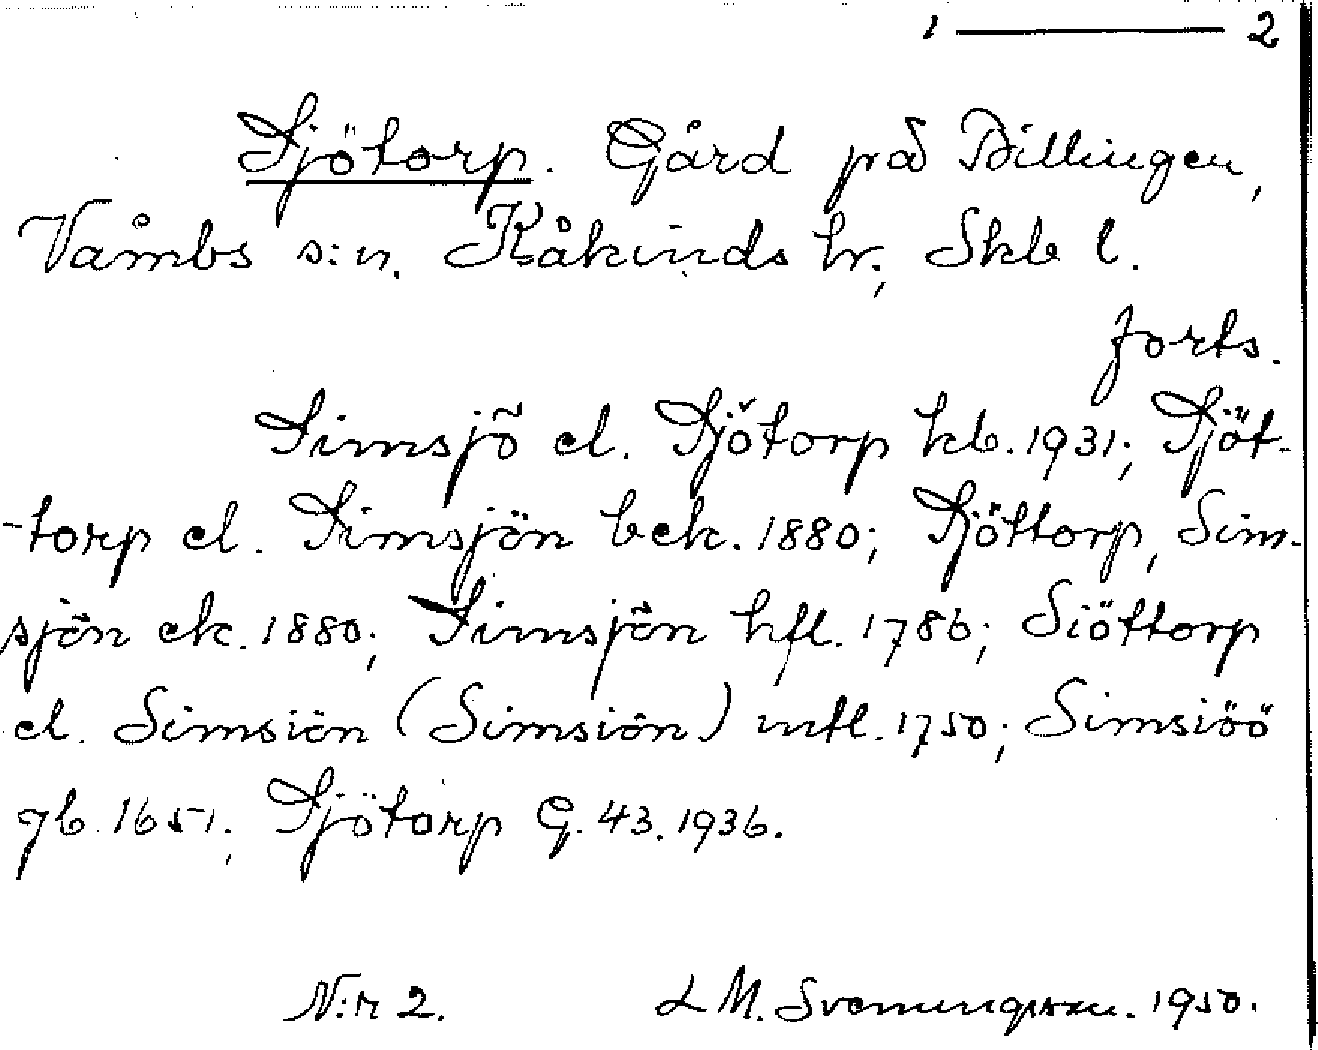 1 — 2
Sjötorp. Gård på Billingen,
Våmbs s:n. Kåkinds hr, Skb l.
forts.
Simsjö el. Sjötorp kb. 1931; Sjöt-
-torp el. Simsjön bek. 1880; Sjöttorp, Sim-
sjön ek. 1880; Simsjön hfl. 1786; Siöttorp
el. Simsiön (Simsiön) mtl. 1750; Simsiöö
gb. 1651; Sjötorp G. 43. 1936.
N:r 2. L M. Svenungsson. 1950.